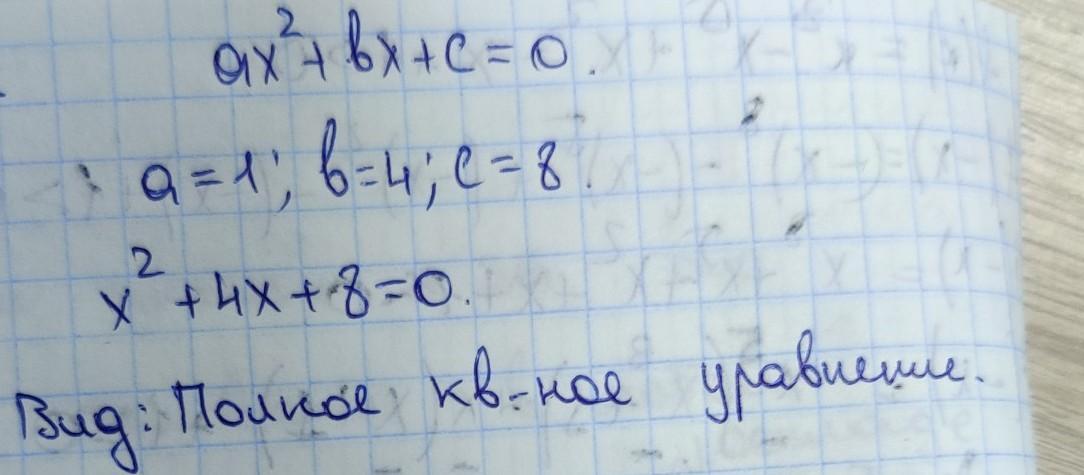 ax² + bx + c = 0.
a = 1; b = 4; c = 8.
x² + 4x + 8 = 0.
Вид: Полное кв-ное уравнение.